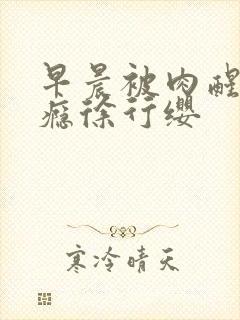 早晨被肉醒
瘾徐行缨
寒冷晴天